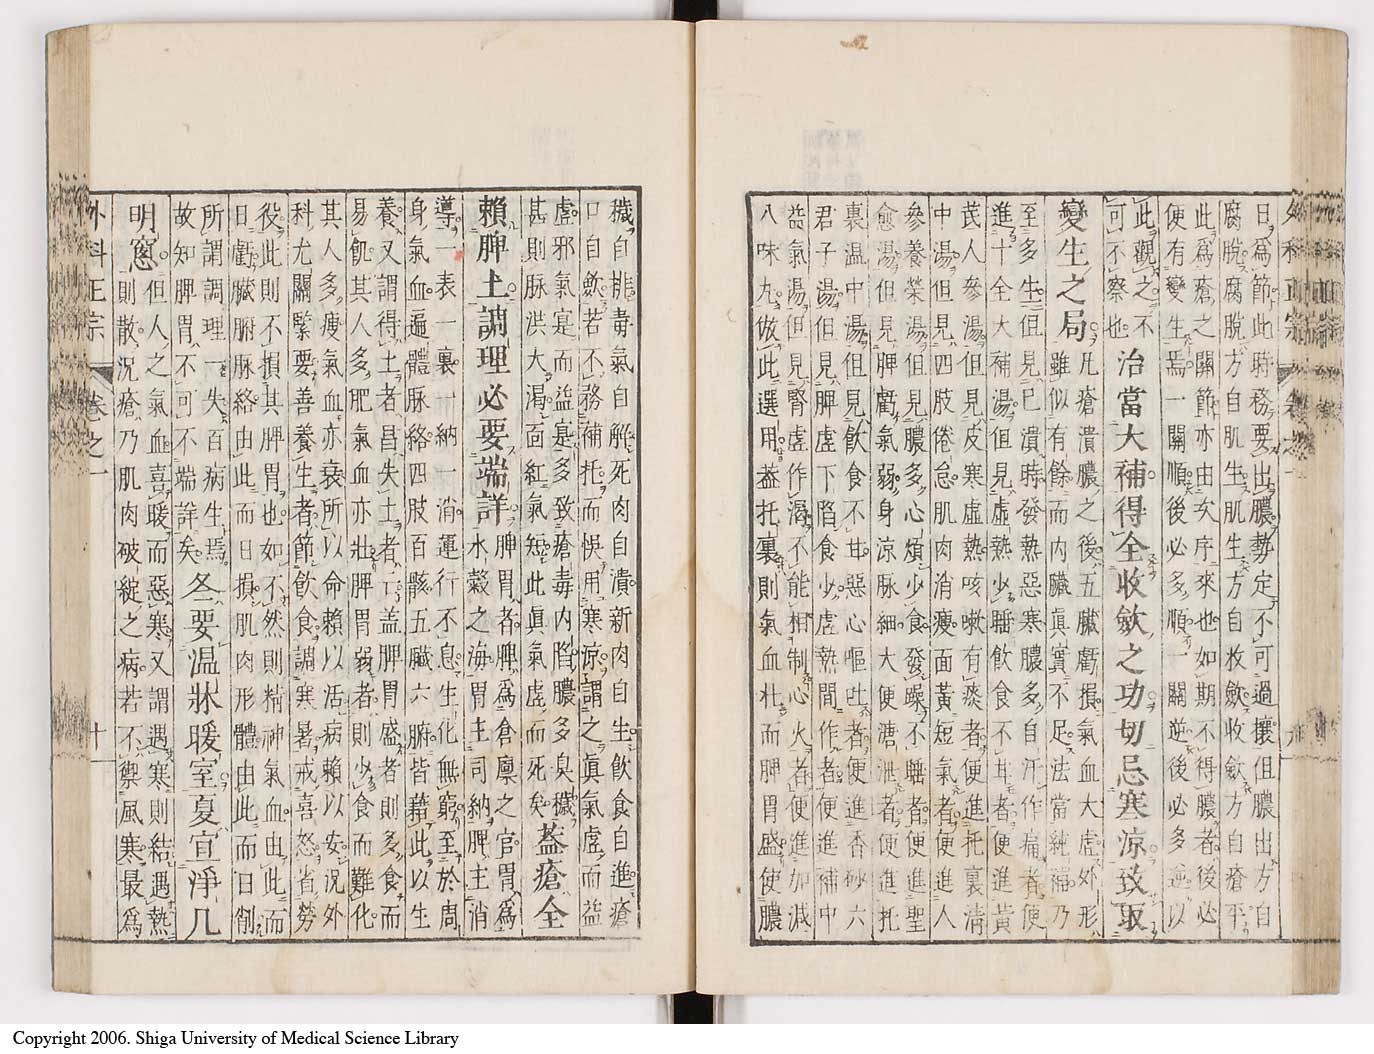 日爲節此時務要出膿勢定不可過攘但膿出方自
腐脫腐脫方自肌生肌生方自收斂收斂方自瘡平
此爲瘡之關節亦由次序來也如期不得膿者後必
便有變生焉一關順後必多順一關逆後必多逆以
此觀之不
可不察也
治當大補得全收斂之功切忌寒涼致取
變生之局
凡瘡潰膿之後五臟虧損氣血大虛外形
雖似有餘而內臟眞實不足法當純補乃
至多生但見已潰時發熱惡寒膿多自汗作痛者便
進十全大補湯但見虛熱少睡飲食不甘者便進黃
芪人參湯但見皮寒虛熱咳嗽有痰者便進托裏清
中湯但見四肢倦怠肌肉消瘦面黃短氣者便進人
參養榮湯但見膿多心煩少食發躁不睡者便進聖
愈湯但見脾虧氣弱身涼脉細大便溏泄者便進托
裏温中湯但見飲食不甘惡心嘔吐者便進香砂六
君子湯但見脾虛下陷食少虛熱間作者便進補中
益氣湯但見腎虛作渴不能相制心火者便進加減
八味丸倣此選用葢托裏則氣血壯而脾胃盛使膿
穢自排毒氣自解死肉自潰新肉自生飲食自進瘡
口自斂若不務補托而悞用寒涼謂之眞氣虛而益
虛邪氣寔而益寔多致瘡毒內陷膿多臭穢
甚則脉洪大渴面紅氣短此眞氣虛而死矣
葢瘡全
賴脾土調理必要端詳
脾胃者脾爲倉廩之官胃爲
水穀之海胃主司納脾主消
導一表一裏一納一消運行不息生化無窮至於周
身氣血遍體脉絡四肢百骸五臟六腑皆藉此以生
養又謂得土者昌失土者亡葢脾胃盛者則多食而
易飢其人多肥氣血亦壯脾胃弱者則少食而難化
其人多瘦氣血亦衰所以命賴以活病賴以安況外
科尤關緊要善養生者節飲食調寒暑戒喜怒省勞
役此則不損其脾胃也如不然則精神氣血由此而
日虧臟腑脉絡由此而日損肌肉形體由此而日削
所謂調理一失百病生焉
故知脾胃不可不端詳矣
冬要温牀暖室夏宜淨几
明窓
但人之氣血喜暖而惡寒又謂遇寒則結遇熱
則散況瘡乃肌肉破綻之病若不禦風寒最爲
外科正宗 卷之一 十一
Copyright 2006. Shiga University of Medical Science Library